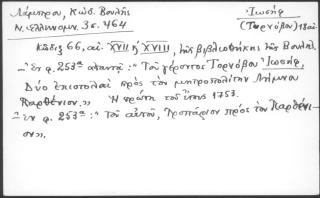 Λάμπρου, Κώδ. Βουλῆς
Ἰωσήφ
Ν. Ἑλληνομ. 3 σ. 464
(Τορνόβου) 18 αἰ.
Κώδιξ 66, αἰ XVII ἢ XVIII, τῆς βιβλιοθήκης τῆς Βουλῆς.
– Ἐν φ. 253α ἀπαντᾷ: "Τοῦ γέροντος Τορνόβου Ἰωσήφ,
Δύο ἐπιστολαὶ πρὸς τὸν μητροπολίτην Λήμνου
Παρθένιον." Ἡ πρώτη τοῦ ἔτους 1753.
– Ἐν φ. 253α: "Τοῦ αὐτοῦ, πρὸς τὸν Παρθένι-
ον",